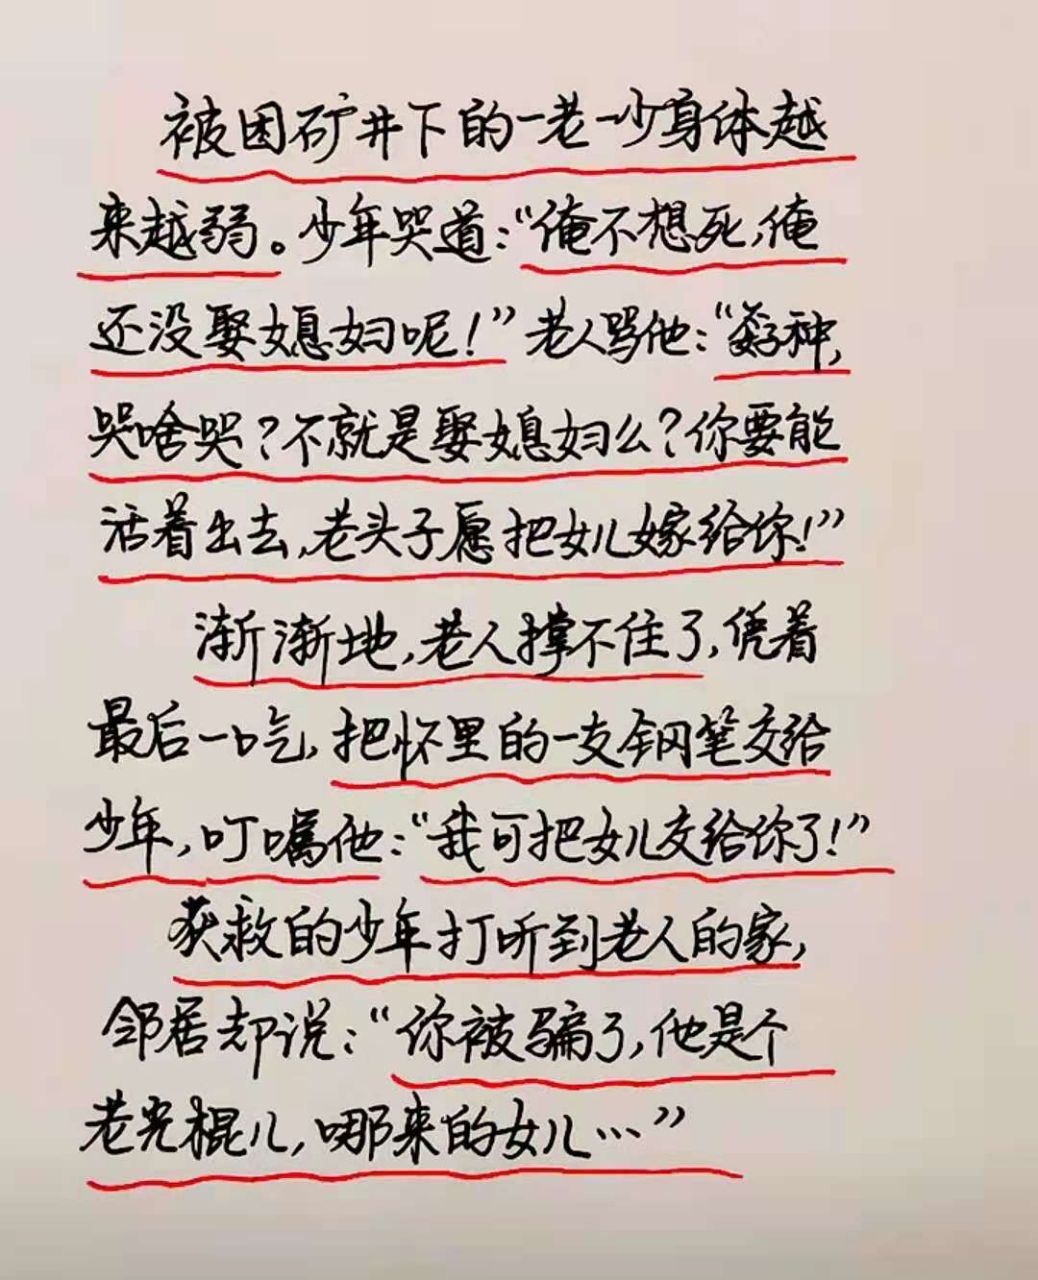 被困矿井下的一老一少身体越
来越弱。少年哭道:“俺不想死,俺
还没娶媳妇呢!”老人骂他:“孬种,
哭啥哭?不就是娶媳妇么?你要能
活着出去,老头子愿把女儿嫁给你!”
渐渐地,老人撑不住了,凭着
最后一口气,把怀里的一支钢笔交给
少年,叮嘱他:“我可把女儿交给你了!”
获救的少年打听到老人的家,
邻居却说:“你被骗了,他是个
老光棍儿,哪来的女儿…”